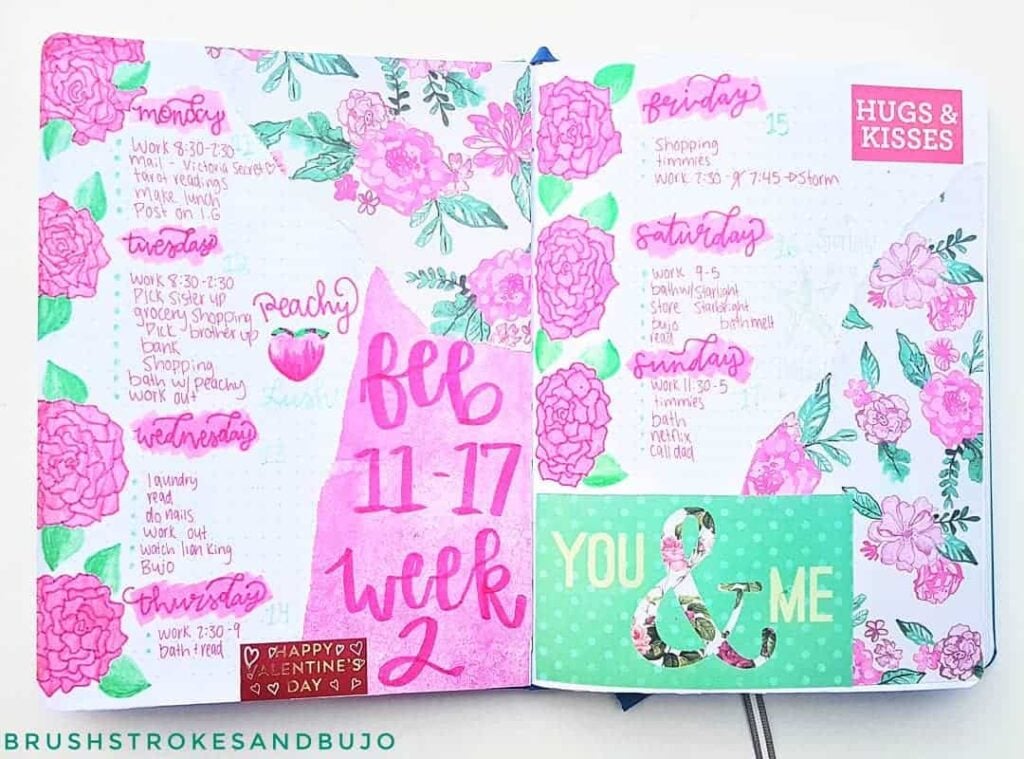 monday
11
work 8:30-2:30
mail - Victoria Secret
tarot readings
make lunch
Post on I.G
tuesday
12
work 8:30-2:30
Pick sister up
grocery shopping
Pick brother up
bank
Shopping
bath w/ peachy
work out
Peachy
Lush!
wednesday
13
laundry
read
do nails
work out
watch lion king
Bujo
thursday
14
work 2:30-9
bath + read
HAPPY
VALENTINE'S
DAY
feb
11-17
week
2
friday
15
Shopping
timmies
work 2:30 - 9 7:45 → Storm
HUGS &
KISSES
saturday
16
work 9-5
bath w/ starlight
store starbright
bujo bathmelt
read
sunday
17
work 11:30-5
timmies
bath
netflix
call dad
YOU & ME
BRUSHSTROKESANDBUJO